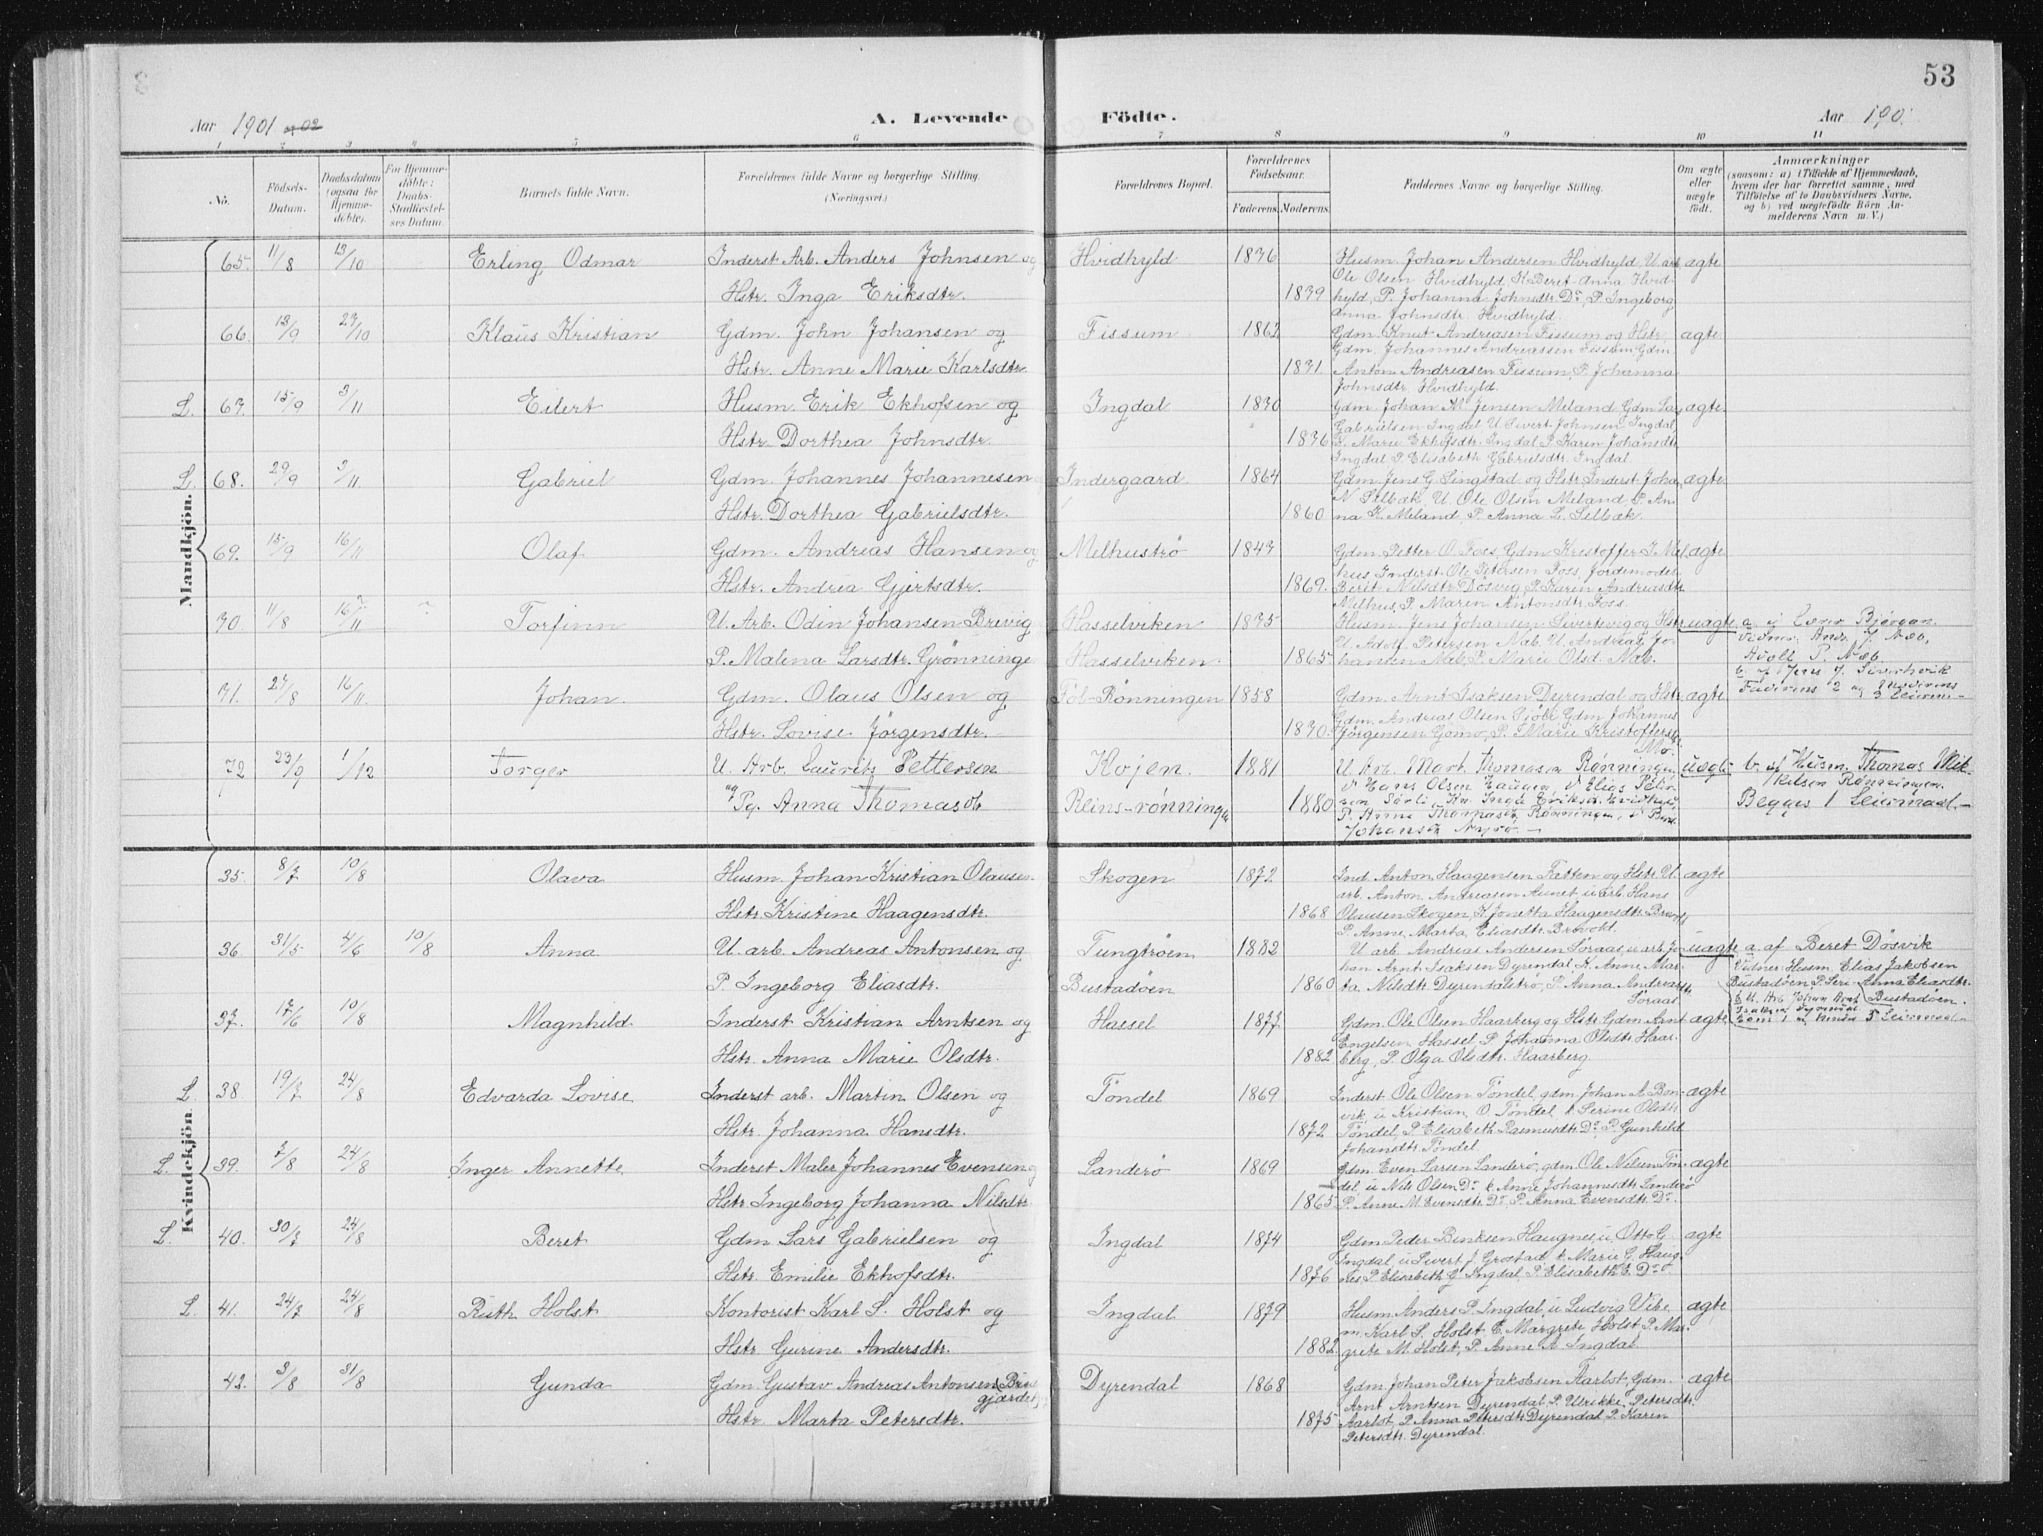 53
Aar 1901 og 02
A. Levende
Födte.
Aar 190
1 2 3 4 5 6 7 8 9 10 11
No.
Födsels-
Datum.
Daabsdatum
(ogsaa for
Hjemme-
döbte).
For Hjemme-
döbte:
Daabs-
Stadfæstel-
ses Datum.
Barnets fulde Navn.
Forældrenes fulde Navne og borgerlige Stilling.
(Næringsvei.)
Forældrenes Bopæl.
Forældrenes
Födselsaar.
Faderens.
Moderens.
Faddernes Navne og borgerlige Stilling.
Om ægte
eller
uægte
födt.
Anmærkninger
(saasom: a) i Tilfælde af Hjemmedaab,
hvem der har forrettet samme, med
Tilföielse af to Daabsvidners Navne,
og b) ved uægtefödte Börn An-
melderens Navn m. V.)
Mandkjön.
65. 11/8 13/10 Erling Odmar Inderst Arb. Anders Johnsen og Hvidhyld 1836 Husm. Johan Andersen Hvidhyld, U. arb. ægte
Ole Olsen Hvidhyld, K. Beret-Anna Hvid-
Hstr. Inga Eriksdtr. 1839 hyld, P. Johanna Johnsdtr. Do, P. Ingeborg
Anna Johnsdtr. Hvidhyld.
66. 13/9 27/10 Klaus Kristian Gdm. John Johansen og Fissum 1862 Gdm. Knut Andreasen Fissum og Hstr. ægte
Gdm. Johannes Andreassen Fissum, Gdm.
Hstr. Anne Marie Karlsdtr. 1871. Anton Andreasen Fissum, P. Johanna
Johnsdtr. Hvidhyld.
L. 67. 15/9 3/11 Eilert Husm. Erik Ekhofsen og Ingdal 1870 Gdm. Johan M. Jensen Meland, Gdm. ægte
Gabrielsen Ingdal, U. Sivert Johnsen Ingdal,
Hstr. Dorthea Johnsdtr. 1876 K. Marie Ekhofsdtr. Ingdal, P. Karen Johansdtr.
Ingdal, P. Elisabeth Gabrielsdtr. Ingdal.
L. 68. 29/9 3/11 Gabriel Gdm. Johannes Johannesen Indergaard 1864 Gdm. Jens G. Singstad og Hstr. Inderst Joha. ægte
N. Selbæk, U. Ole Olsen Meland, P. An-
Hstr. Dorthea Gabrielsdtr. 1860 na K. Meland, P. Anna L. Selbæk.
69. 15/9 16/11 Olaf Gdm. Andreas Hansen og Melhuströ 1847 Gdm. Petter O. Foss, Gdm. Kristoffer J. Mel- ægte
hus, Inderst Ole Petersen Foss, Jordemoder
Hstr. Andrea Gjertsdtr. 1869. Berit Nilsdtr. Dösvig, P. Karen Andreasdtr.
Melhus, P. Maren Antonsdtr. Foss.
70. 11/8 16/11 ? Torfinn U. Arb. Odin Johansen Brevig Hasselviken 1875 Husm. Jens Johansen Sivertsvig og Hstr. uægte a. Bjørgan.
U. Adolf Petersen Næb, U. Andreas Jo- Vidner: Andr. J. Næb,
P. Malena Larsdtr. Grönninge Hasselviken. 1865 hansen Næb, P. Marie Olsd. Næb. Adolf P. Næb.
b. af Jens J. Sivertsvik
Faderens 2 og Moderens
3 Leierm.
71. 27/8 16/11. Johan. Gdm. Olaus Olsen og Föl-Rönningen 1858 Gdm. Arnt Isaksen Dyrendal og Hstr. ægte
Gdm. Andreas Olsen Sjöli, Gdm. Johannes
Hstr. Lovise Jörgensdtr. 1870. Jörgensen Gomo, P. Marie Kristoffersdtr.
Mo.
72 23/9 1/12 Torger U. Arb. Laurits Pettersen Kojen. 1881 U. Arb. Mart. Thomasen Rønningen, uægte b. af Husm. Thomas Mik-
do Hans Olsen Haugen, do Elias Peter- kelsen Rønningen.
og Pg. Anna Thomasdt Reins-rønningen 1880 sen Sørli, Kv. Inga Eriksd. Hvidhyld, Begges 1 Leiermaal.
P. Anne Thomasdt Rønningen, do Berit
Johansdt Nyrø.
Kvindekjön.
35. 8/7 10/8 Olava Husm. Johan Kristian Olausen Skogen 1872 Ind. Anton Haagensen Fatten og Hstr. U. ægte
arb. Anton Andreasen Aunet, u. arb. Hans
Hstr. Kristine Haagensdtr. 1868 Olausen Skogen, K. Jonetta Haagensdtr.
P. Anne Marta Eliasdtr. Brovold.
36. 31/5 4/6 10/8 Anna U. arb. Andreas Antonsen og Tungtröen 1882 U. arb. Andreas Andersen Soraas, u. arb. Jo- uægte a. af Beret Dösvik
han Arnt Isaksen Dyrendal, K. Anne Mar- Vidner: Husm. Elias Jakobsen
P. Ingeborg Eliasdtr. Bustadöen 1860 ta Nilsdtr. Dyrendalströ, P. Anna Andreasdtr. Bustadöen, P. Seri-Anna Eliasdtr.
Soraas. Bustadöen.
b. U. Arb. Johan Arnt
Isaksen Dyrendal
37. 17/6 10/8 Magnhild Inderst Kristian Arntsen og Hassel 1877 Gdm. Ole Olsen Haarberg og Hstr. Gdm. Arnt ægte
Engelsen Hassel, P. Johanna Olsdtr. Haar-
Hstr. Anna Marie Olsdtr. 1882 berg, P. Olga Olsdtr. Haarberg
L. 38. 19/7 24/8 Edvarda Lovise Inderst arb. Martin Olsen og Töndel 1869 Inderst Ole Olsen Töndel, gdm. Johan A. Bon- ægte
vik, u. Kristian O. Töndel, k. Serine Olsdtr.
Hstr. Johanna Hansdtr. 1872 Töndel, P. Elisabeth Rasmusdtr. Do, P. Gunhild
Johansdtr. Töndel
L. 39. 7/8 24/8 Inger Annette Inderst Maler Johannes Evensen og Landerö 1869 Gdm. Even Larsen Landerö, gdm. Ole Nilsen Tön- ægte
del, u. Nils Olsen Do, k. Anne Johannesdtr. Landerö
Hstr. Ingeborg Johanna Nilsdtr 1865 P. Anne M. Evensdtr. Do, P. Anna Evensdtr. Do.
L. 40. 30/7 24/8 Beret Gdm Lars Gabrielsen og Ingdal 1874 Gdm Peder Benksen Haugnes, u. Otto G. ægte
Ingdal, u. Sivert J. Grostad, k. Marie G. Haug-
Hstr. Emilie Ekhofsdtr. 1876 nes, P. Elisabeth G. Ingdal, P. Elisabeth E. Do
L. 41. 24/7 24/8 Ruth Holst Kontorist Karl S. Holst og Ingdal 1879 Husm. Anders P. Ingdal, u. Ludvig Vibe, ægte
m. Karl S. Holst, E. Margrete Holst, P. Mar-
Hstr. Gurine Andersdtr. 1882. grete M. Holst, P. Anne A. Ingdal.
42. 3/8 31/8 Gunda Gdm. Gustav Andreas Antonsen Dyrendal 1868 Gdm. Johan Peter Jakobsen Aarlot, Gdm. ægte
Arnt Arntsen Dyrendal, P. Ulrikke Petersdtr.
Hstr. Marta Petersdtr. 1875 Aarlot, P. Anna Petersdtr. Dyrendal, P. Karen
Petersdtr. Dyrendal.